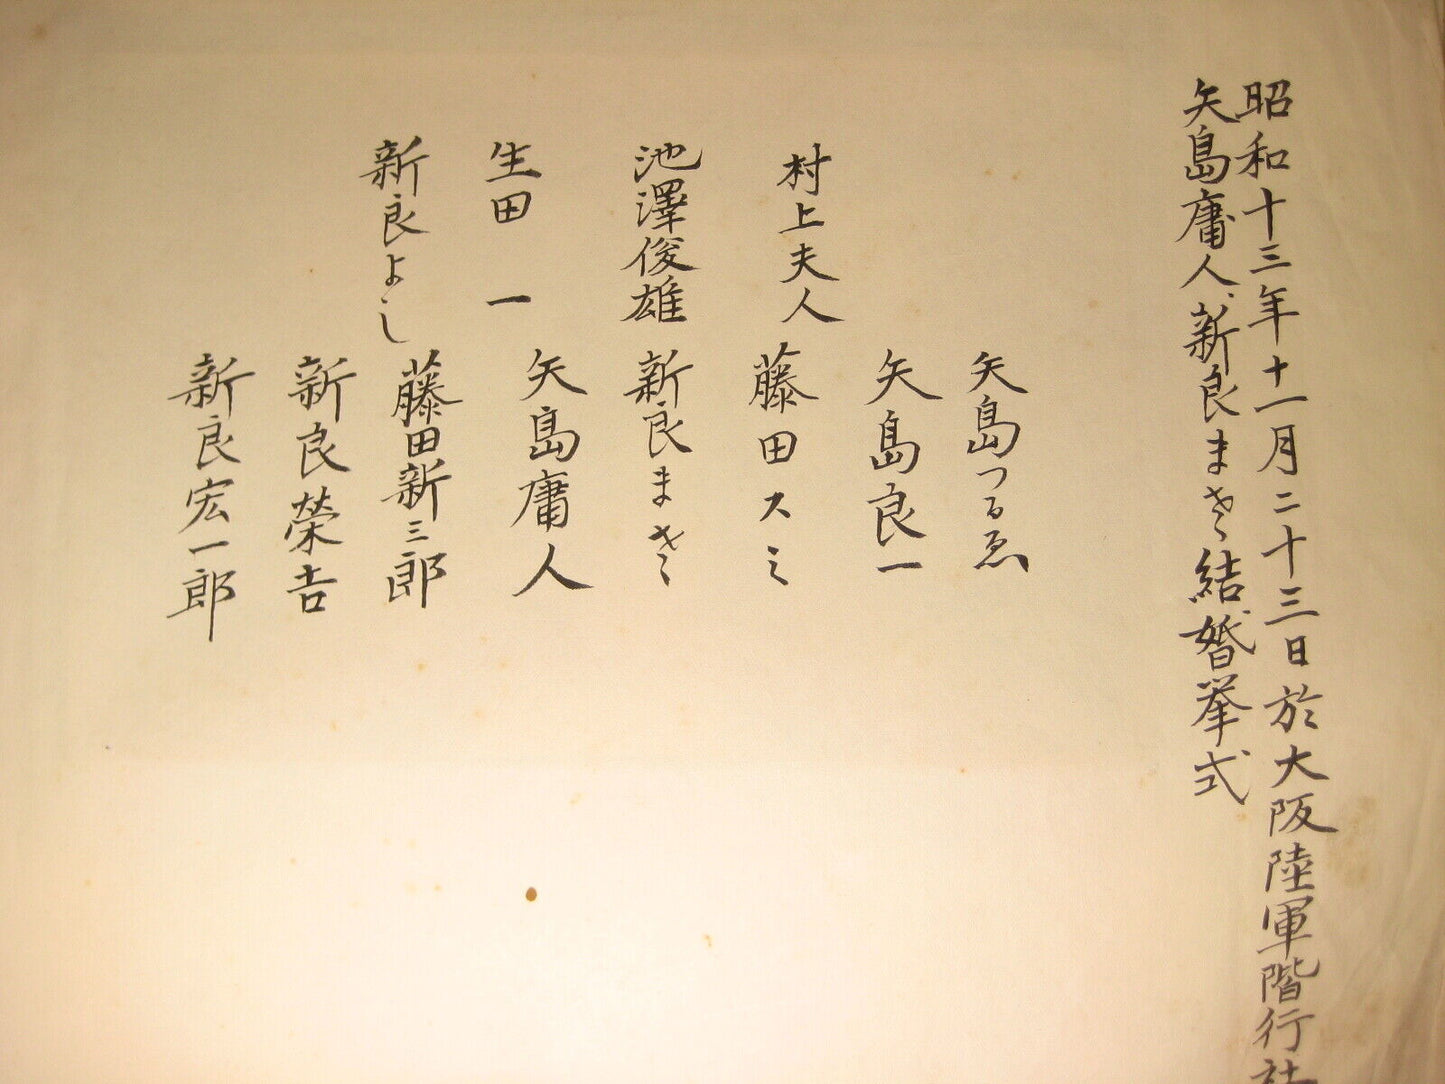 昭和十三年十一月二十三日於大阪陸軍階行社
矢島庸人、新良まさ結婚挙式
村上夫人
池澤俊雄
生田一
新良よし
矢島つるゑ
矢島良一
藤田スミ
新良まさ
矢島庸人
藤田新三郎
新良榮吉
新良宏一郎